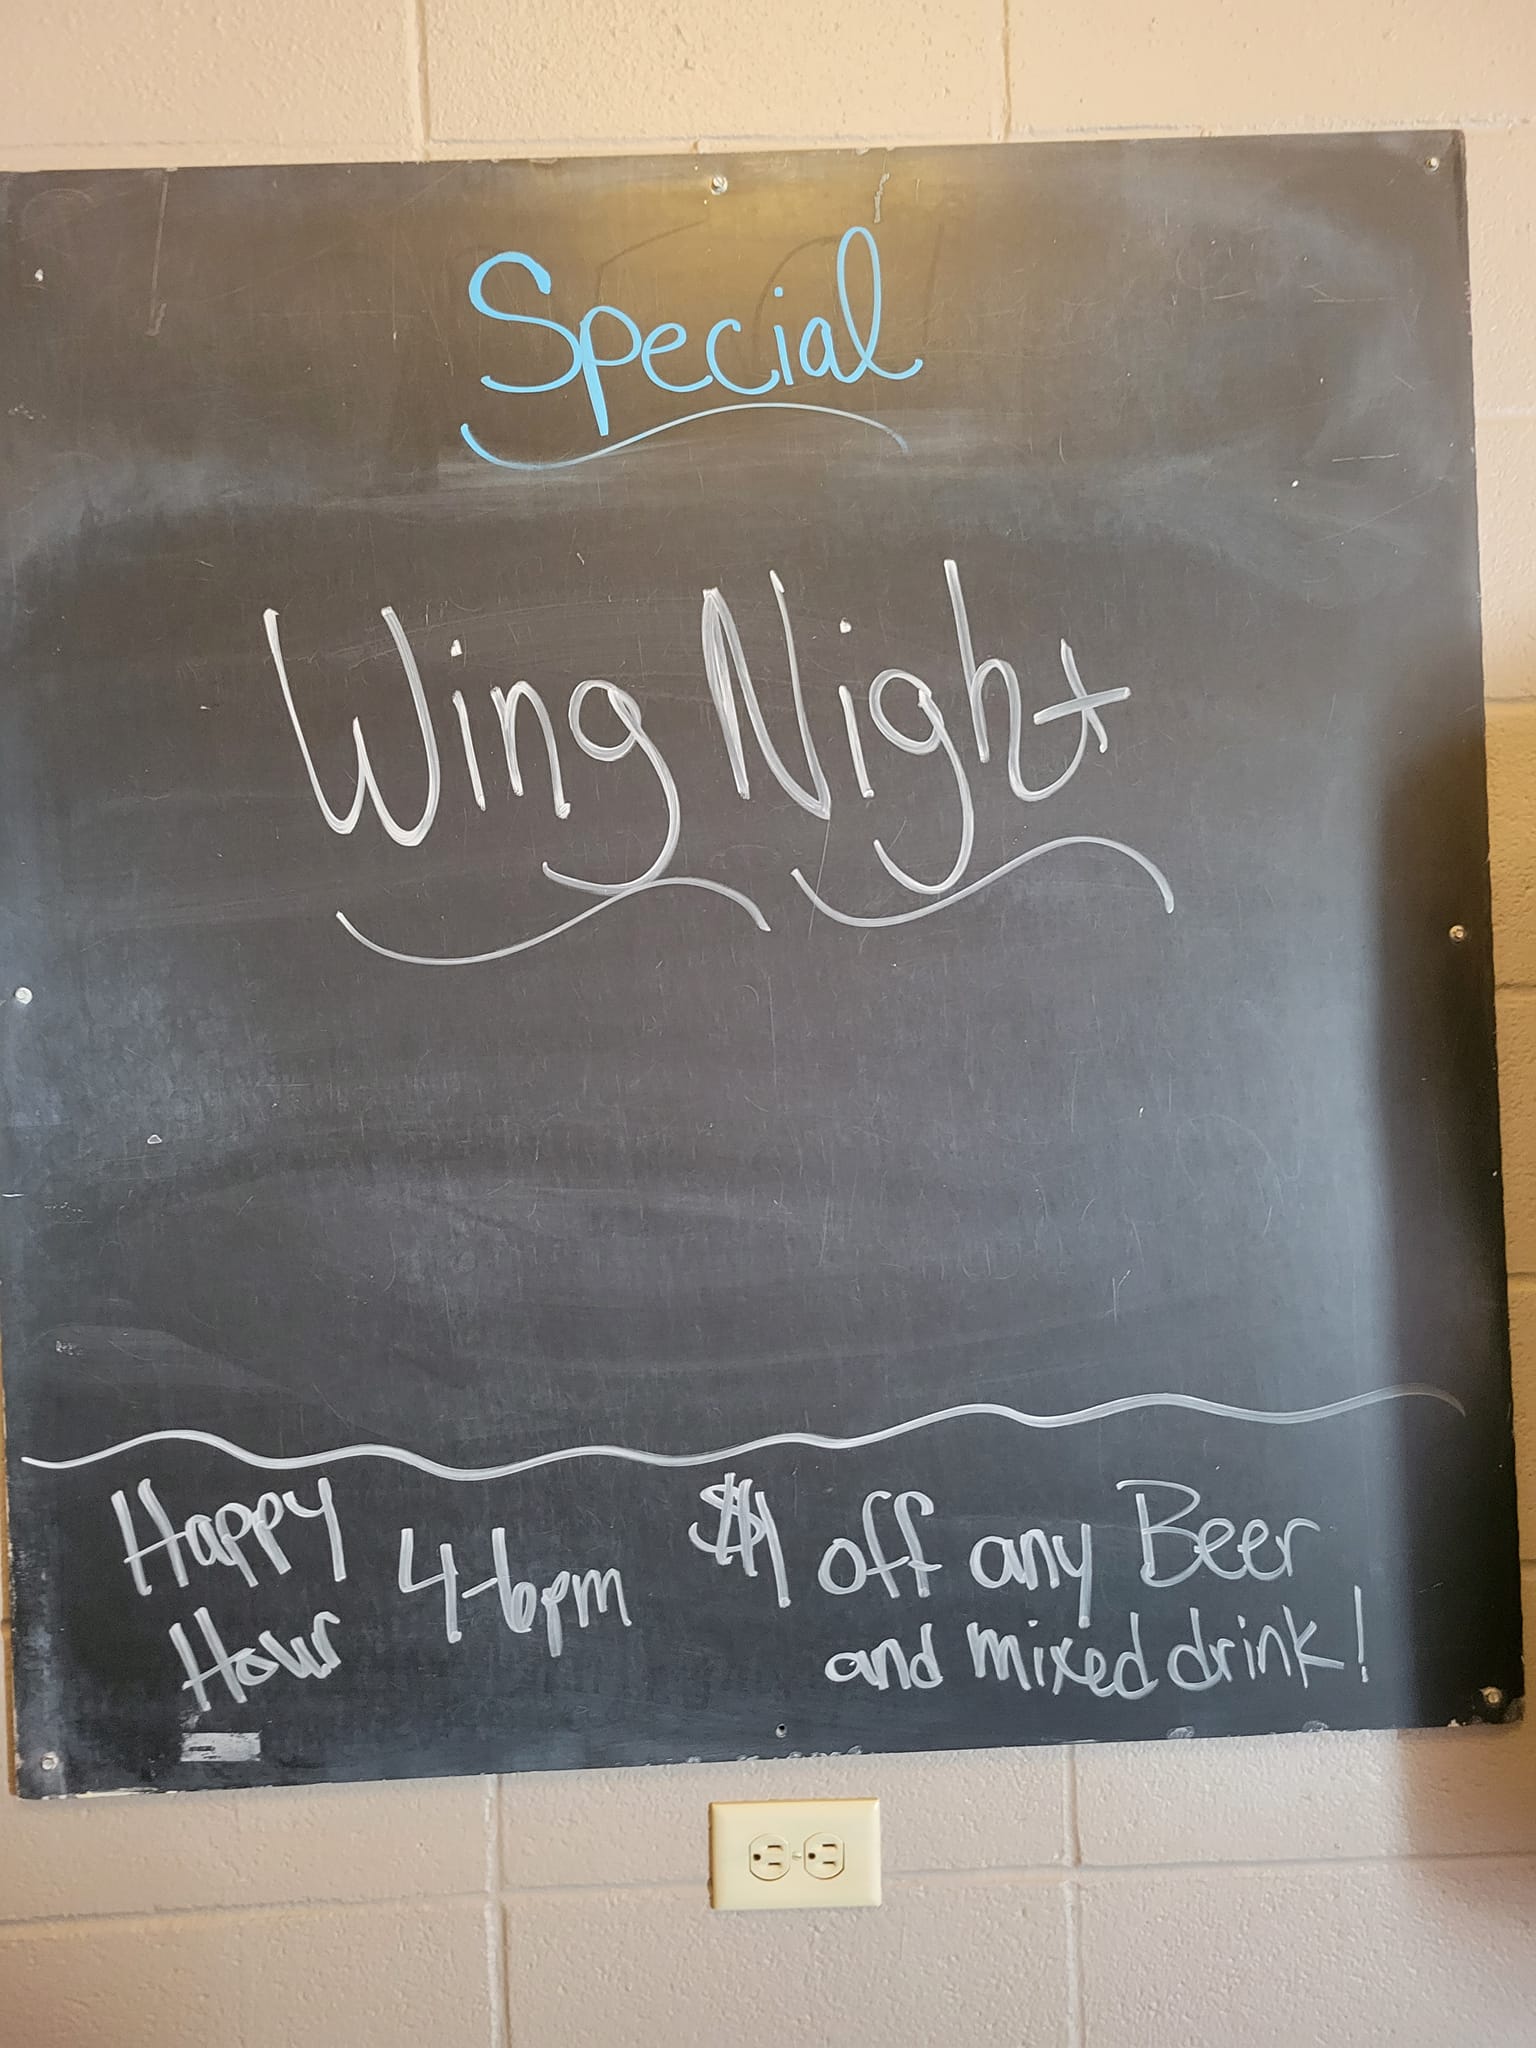 Special
Wing Night
Happy Hour 4-6pm $1 off any Beer
and mixed drink!